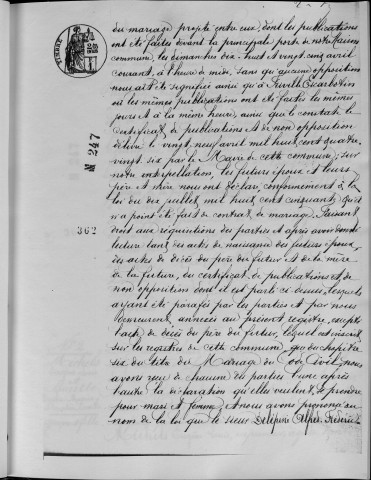 du mariage projeté entre eux, dont les publications
ont été faites devant la principale porte de notre Maison
commune, les dimanches dix-huit et vingt cinq avril
courant, à l'heure de midi, sans qu'aucune opposition
nous ait été signifiée ainsi qu'à
où les mêmes publications ont été faites les mêmes
jours et à la même heure, ainsi que le constate le
certificat de publications et de non opposition
délivré le vingt neuf avril mil huit cent quatre
vingt six par le Maire de cette commune; sur
notre interpellation, les futurs époux et leurs
père et mère nous ont déclaré, conformément à la
loi du dix juillet mil huit cent cinquante qu'il
n'a point été fait de contrat de mariage. Faisant
droit aux réquisitions des parties et après avoir donné
lecture tant des actes de naissance des futurs époux,
des actes de décès du père du futur et de la mère
de la future, du certificat de publications et de
non opposition dont il est parlé ci-dessus, lesquels
ayant été parafés par les parties et par nous
demeurent annexés au présent registre, excepté
l'acte de décès du père du futur, lequel est inscrit
sur les registres de cette commune, que du chapitre
six du titre du Mariage du Code Civil, nous
avons reçu de chacune des parties l'une après
l'autre la déclaration qu'elles veulent se prendre
pour mari et femme, et nous avons prononcé au
nom de la loi que le sieur Delépine Alfred Frédéric
N 247
362